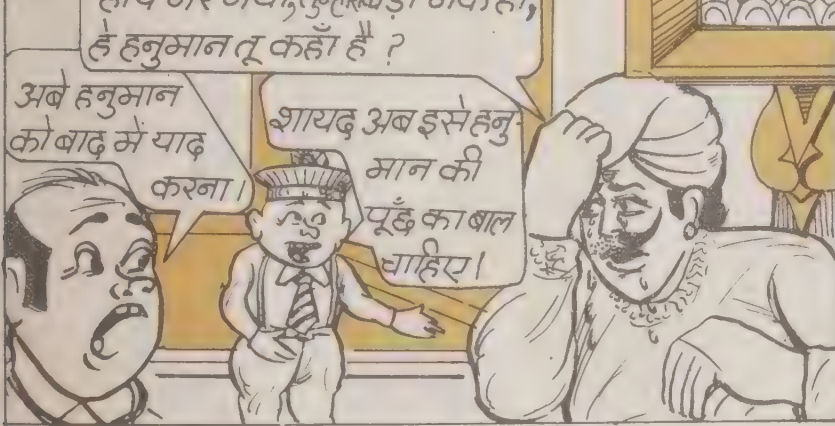 हे हनुमान तू कहाँ है ?
अबे हनुमान
को बाद में याद
करना।
शायद अब इसे हनु
मान की
पूँछ का बाल
चाहिए।